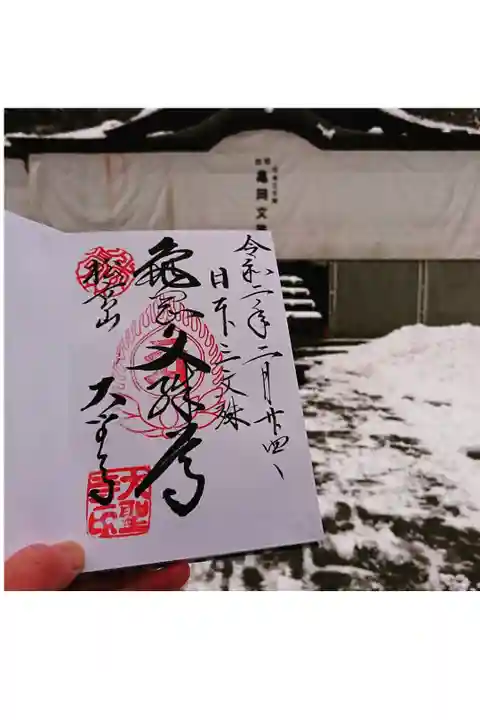 亀岡文
令和二年二月廿四日
日本三文殊
龜岡文殊尊
松高山
大聖寺
大聖寺印